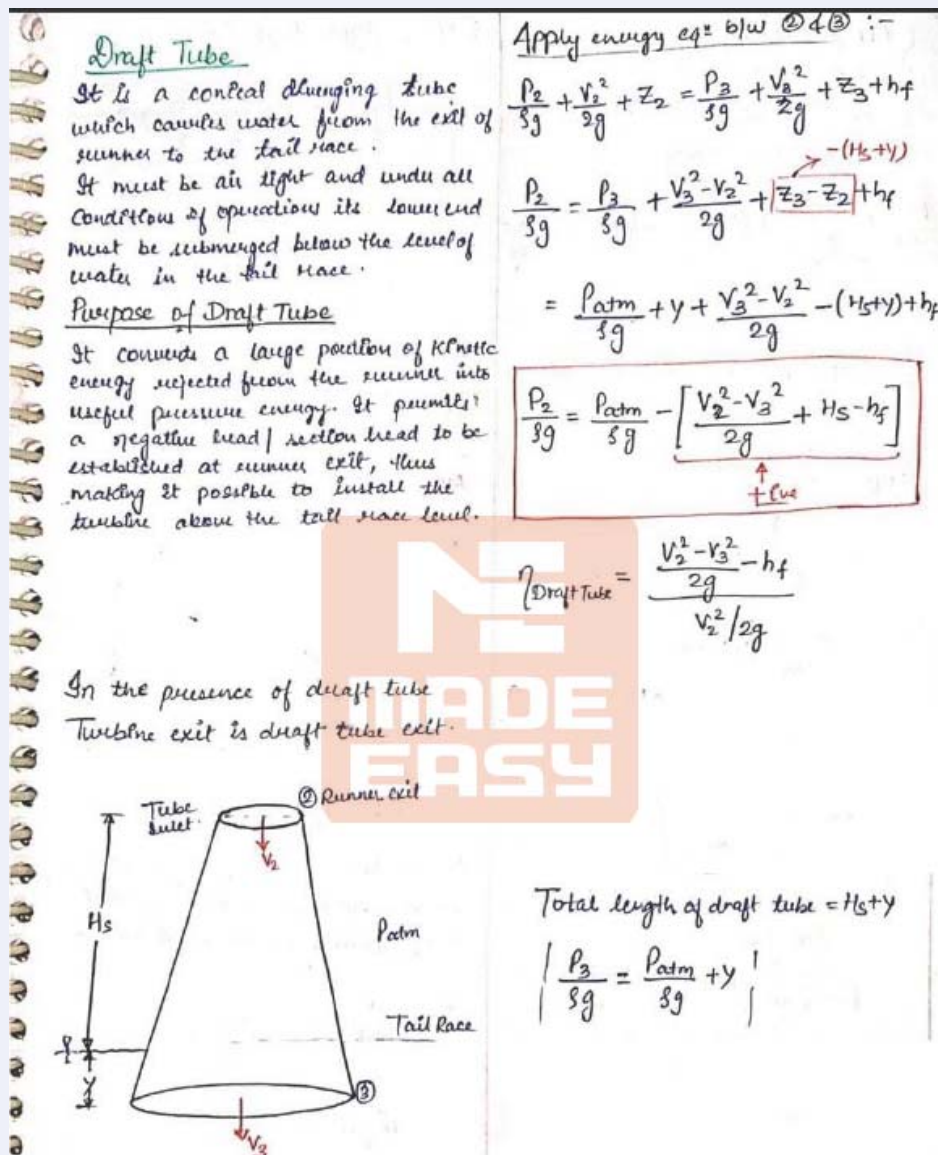 Draft Tube
It is a conical diverging tube
which carries water from the exit of
runner to the tail race.
It must be air tight and under all
conditions of operations its lower end
must be submerged below the level of
water in the tail race.
Purpose of Draft Tube
It converts a large portion of Kinetic
energy rejected from the runner into
useful pressure energy. It permits
a negative head/ suction head to be
established at runner exit, thus
making it possible to install the
turbine above the tail race level.
In the presence of draft tube
Turbine exit is draft tube exit.
② Runner exit
Tube
Inlet.
V₂
Hs
Patm
Tail Race
y
③
V₃
Apply energy eqⁿ b/w ② & ③ :-
P₂/ρg + V₂²/2g + Z₂ = P₃/ρg + V₃²/2g + Z₃ + hf
-(Hs+y)
P₂/ρg = P₃/ρg + (V₃²-V₂²)/2g + Z₃-Z₂ + hf
= Patm/ρg + y + (V₃²-V₂²)/2g - (Hs+y) + hf
P₂/ρg = Patm/ρg - [(V₂²-V₃²)/2g + Hs - hf]
+ive
η Draft Tube = ((V₂²-V₃²)/2g - hf) / (V₂²/2g)
MADE
EASY
Total length of draft tube = Hs+y
P₃/ρg = Patm/ρg + y